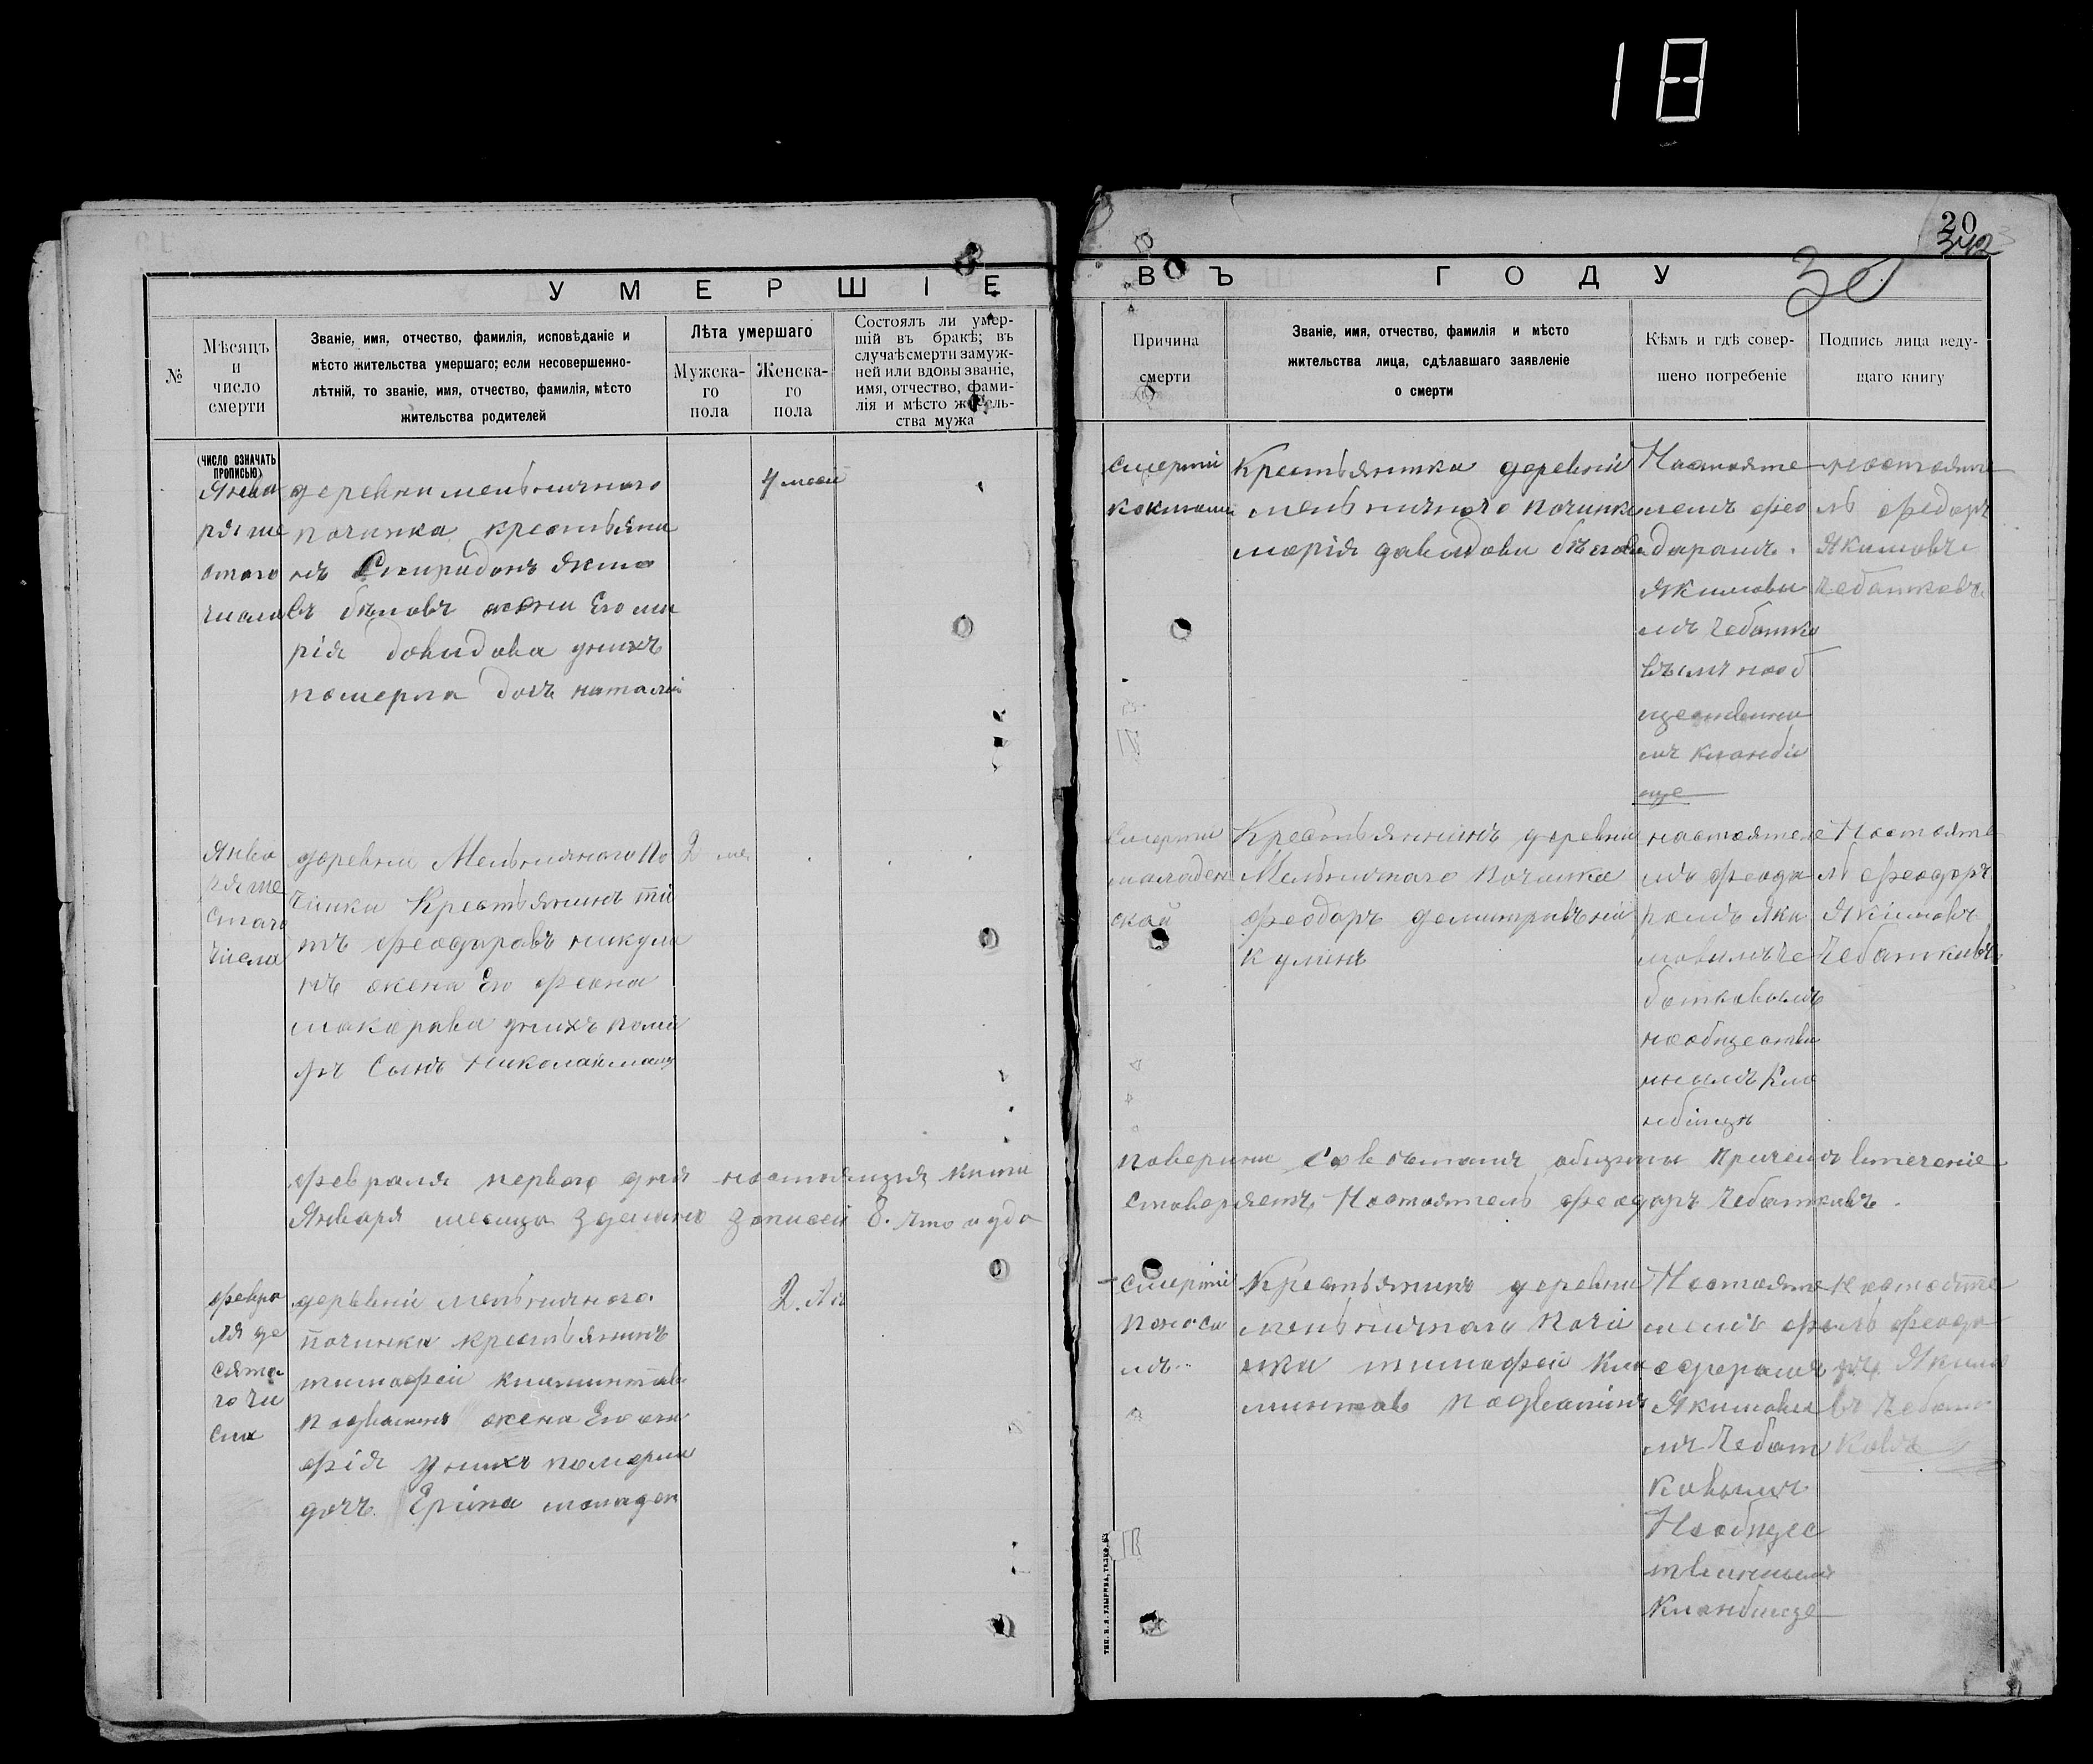 18
20
342
30
УМЕРШІЕ
ВЪ ГОДУ
№
Мѣсяцъ
и
число
смерти
Званіе, имя, отчество, фамилія, исповѣданіе и
мѣсто жительства умершаго; если несовершенно-
лѣтній, то званіе, имя, отчество, фамилія, мѣсто
жительства родителей
Лѣта умершаго
Мужска-
го
пола
Женска-
го
пола
Состоялъ ли умер-
шій въ бракѣ; въ
случаѣ смерти замуж-
ней или вдовы званіе,
имя, отчество, фами-
лія и мѣсто житель-
ства мужа
Причина
смерти
Званіе, имя, отчество, фамилія и мѣсто
жительства лица, сдѣлавшаго заявленіе
о смерти
Кѣмъ и гдѣ совер-
шено погребеніе
Подпись лица веду-
щаго книгу
(ЧИСЛО ОЗНАЧАТЬ
ПРОПИСЬЮ)
Янва
ря ше
стаго
числа
деревни мельничного
починка крестьяни
нъ Спиридонъ Яким
въ жена Его ма
рія довидова унихъ
померла дочь наталия
4
смертий
Крестьянка деревни
мельничного починка
марія давидова
Настояте
лемъ фео
даромъ
Якимовы
мъ Чебатко
вымъ нооб
щественны
мъ кланби
ще
настояте
ль Федоръ
Якимовъ
Чебатковъ
Янва
ря ше
стаго
числа
деревни Мельничного По
чинки Крестьянинъ ти
тъ феодоровъ никули
нъ жена Его феона
макарова унихъ поми
ръ Сынъ Николай
2 ме
смерти
младен
ской
Крестьянинъ деревни
Мельничного Починка
феодоръ демитривъ ни
кулинъ
настоятеле
мъ феодо
ромъ Яки
мовымъ Че
батковымъ
нообществе
ннымъ Кла
нбищи
Настояте
ль феодоръ
Якимовъ
Чебатковъ
февраля первого дня настоящия книги
Января месяца зделано записей 8. что и удо
поверини Советомъ общины причемъ втечение
стоверяетъ Настоятель феодоръ Чебатковъ.
февра
ля де
сята
го чи
сла
деревни мельничного
починка крестьянинъ
тимофей
жена Его
фія унихъ померла
дочь Ерина младен
2.
смертие
поноса
мъ
Крестьянинъ деревни
мельничного почи
нка тимофей Кли
ментов
Настояте
лемъ
Якимовы
мъ Чебат
ковымъ
Нообщес
твенным
Кланбище
настояте
ль феодо
ръ Якимо
въ Чебат
ковъ